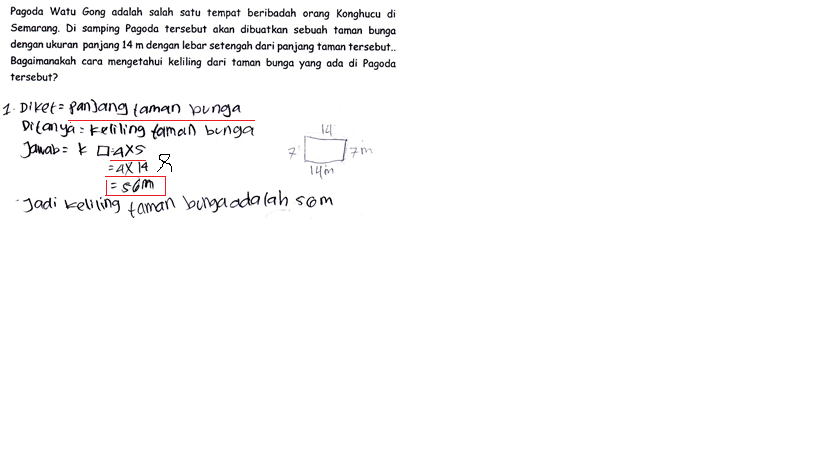 Pagoda Watu Gong adalah salah satu tempat beribadah orang Konghucu di
Semarang. Di samping Pagoda tersebut akan dibuatkan sebuah taman bunga
dengan ukuran panjang 14 m dengan lebar setengah dari panjang taman tersebut..
Bagaimanakah cara mengetahui keliling dari taman bunga yang ada di Pagoda
tersebut?
1. Diket = panjang taman bunga
Ditanya = keliling taman bunga
Jawab = k □ = 4 x s
= 4 x 14
= 56 m
Jadi keliling taman bunga adalah 56 m
14
7
7 m
14 m